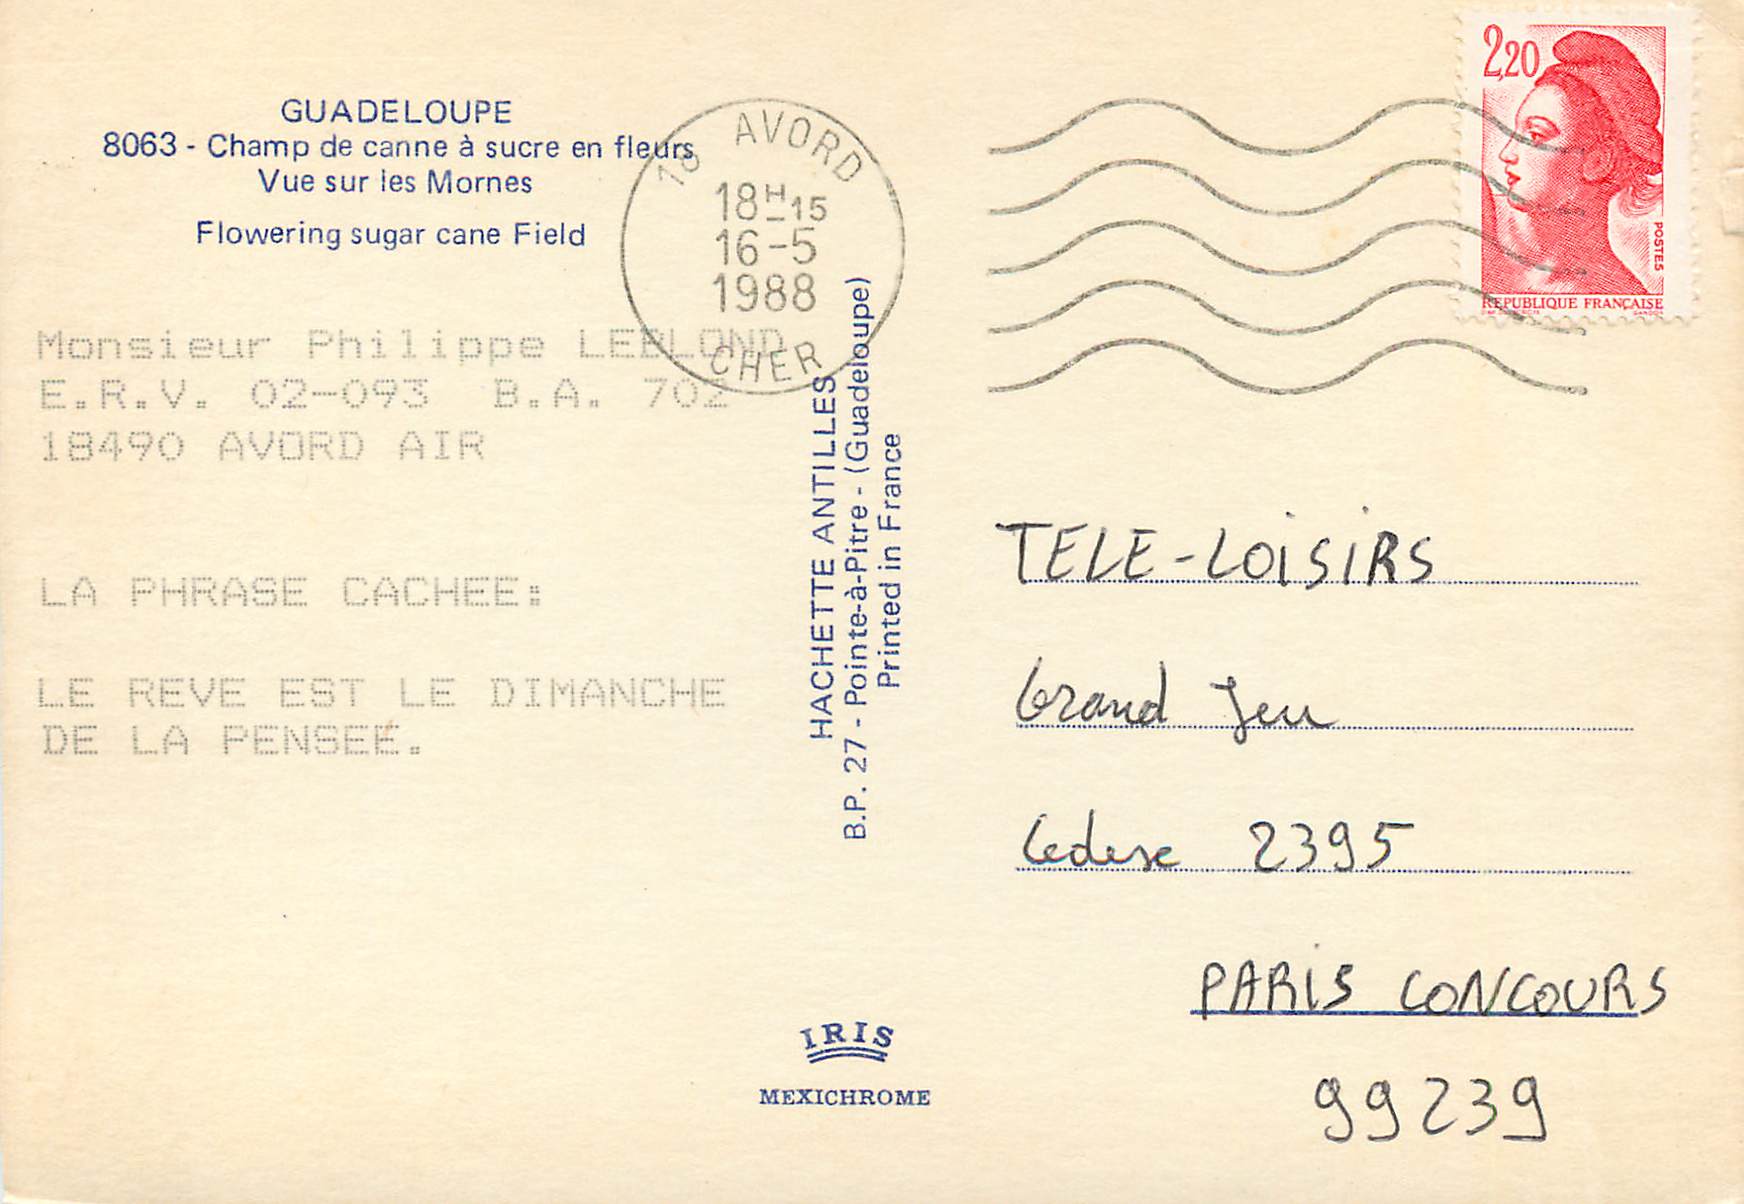 GUADELOUPE
8063 - Champ de canne à sucre en fleurs
Vue sur les Mornes
Flowering sugar cane Field
18 AVORD
18H-15
16-5
1988
CHER
2,20
POSTES
REPUBLIQUE FRANÇAISE
GANDON
Monsieur Philippe LEBLOND
E.R.V. 02-093 B.A. 702
18490 AVORD AIR
LA PHRASE CACHEE:
LE REVE EST LE DIMANCHE
DE LA PENSEE.
HACHETTE ANTILLES
B.P. 27 - Pointe-à-Pitre - (Guadeloupe)
Printed in France
TELE-LOISIRS
Grand Jeu
Cedex 2395
PARIS CONCOURS
99239
IRIS
MEXICHROME